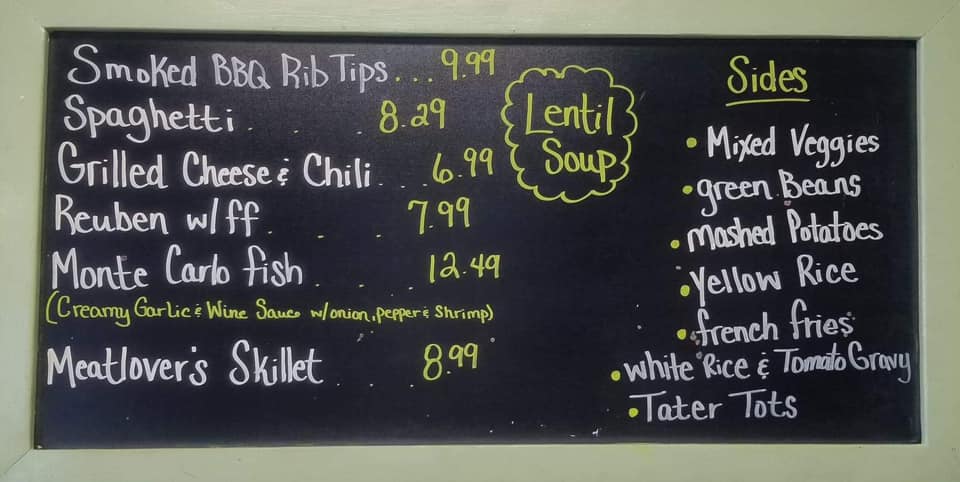 Smoked BBQ Rib Tips... 9.99
Spaghetti . . . 8.29
Grilled Cheese & Chili . . . 6.99
Reuben w/ff . . . 7.99
Monte Carlo fish . . . 12.49
(Creamy Garlic & Wine Sauce w/onion, pepper & Shrimp)
Meatlover's Skillet . . . 8.99
Lentil
Soup
Sides
• Mixed Veggies
• green Beans
• Mashed Potatoes
• Yellow Rice
• french fries
• white Rice & Tomato Gravy
• Tater Tots